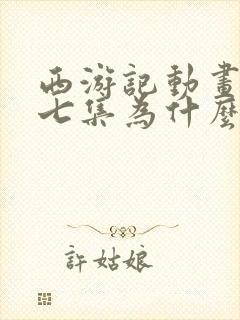 西游記動畫
七集為什麼
許姑娘